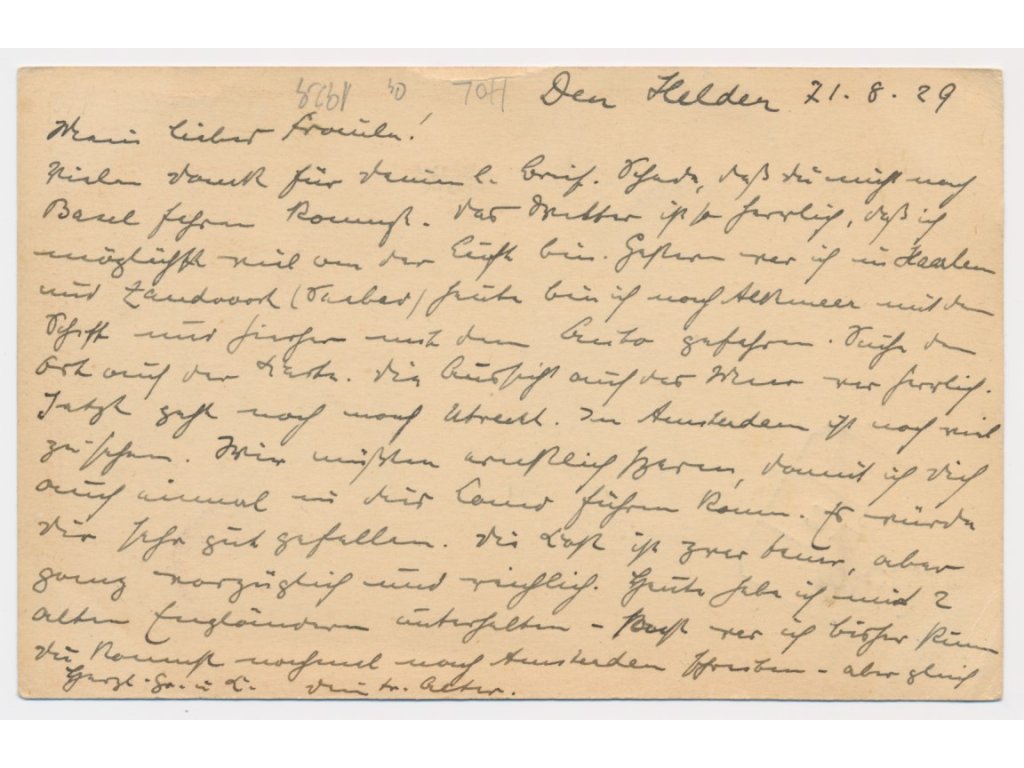 HOL 30 1929
Den Helder 21.8.29
Mein liebes Fraule!
Vielen Dank für Deinen l. Brief. Schade, daß Du nicht nach
Basel fahren kannst. Das Wetter ist so herrlich, daß ich
möglichst viel an der Luft bin. Gestern war ich in Haarlem
und Zandvoort (Seebad) heute bin ich nach Alkmaar mit dem
Schiff und hierher mit dem Auto gefahren. Siehe den
Ort auf der Karte. Die Aussicht auf das Meer war herrlich.
Jetzt geht noch nach Utrecht. In Amsterdam ist noch viel
zu sehen. Wir müßten ernstlich sparen, damit ich Dich
auch einmal in dies Land führen kann. Es würde
Dir sehr gut gefallen. Die Kost ist zwar teuer, aber
ganz vorzüglich und reichlich. Heute habe ich mich mit 2
alten Engländern unterhalten - war ich bisher
Du kannst nochmal nach Amsterdam schreiben - aber gleich
Herzl. Gr. u. K. Dein tr. Alter.